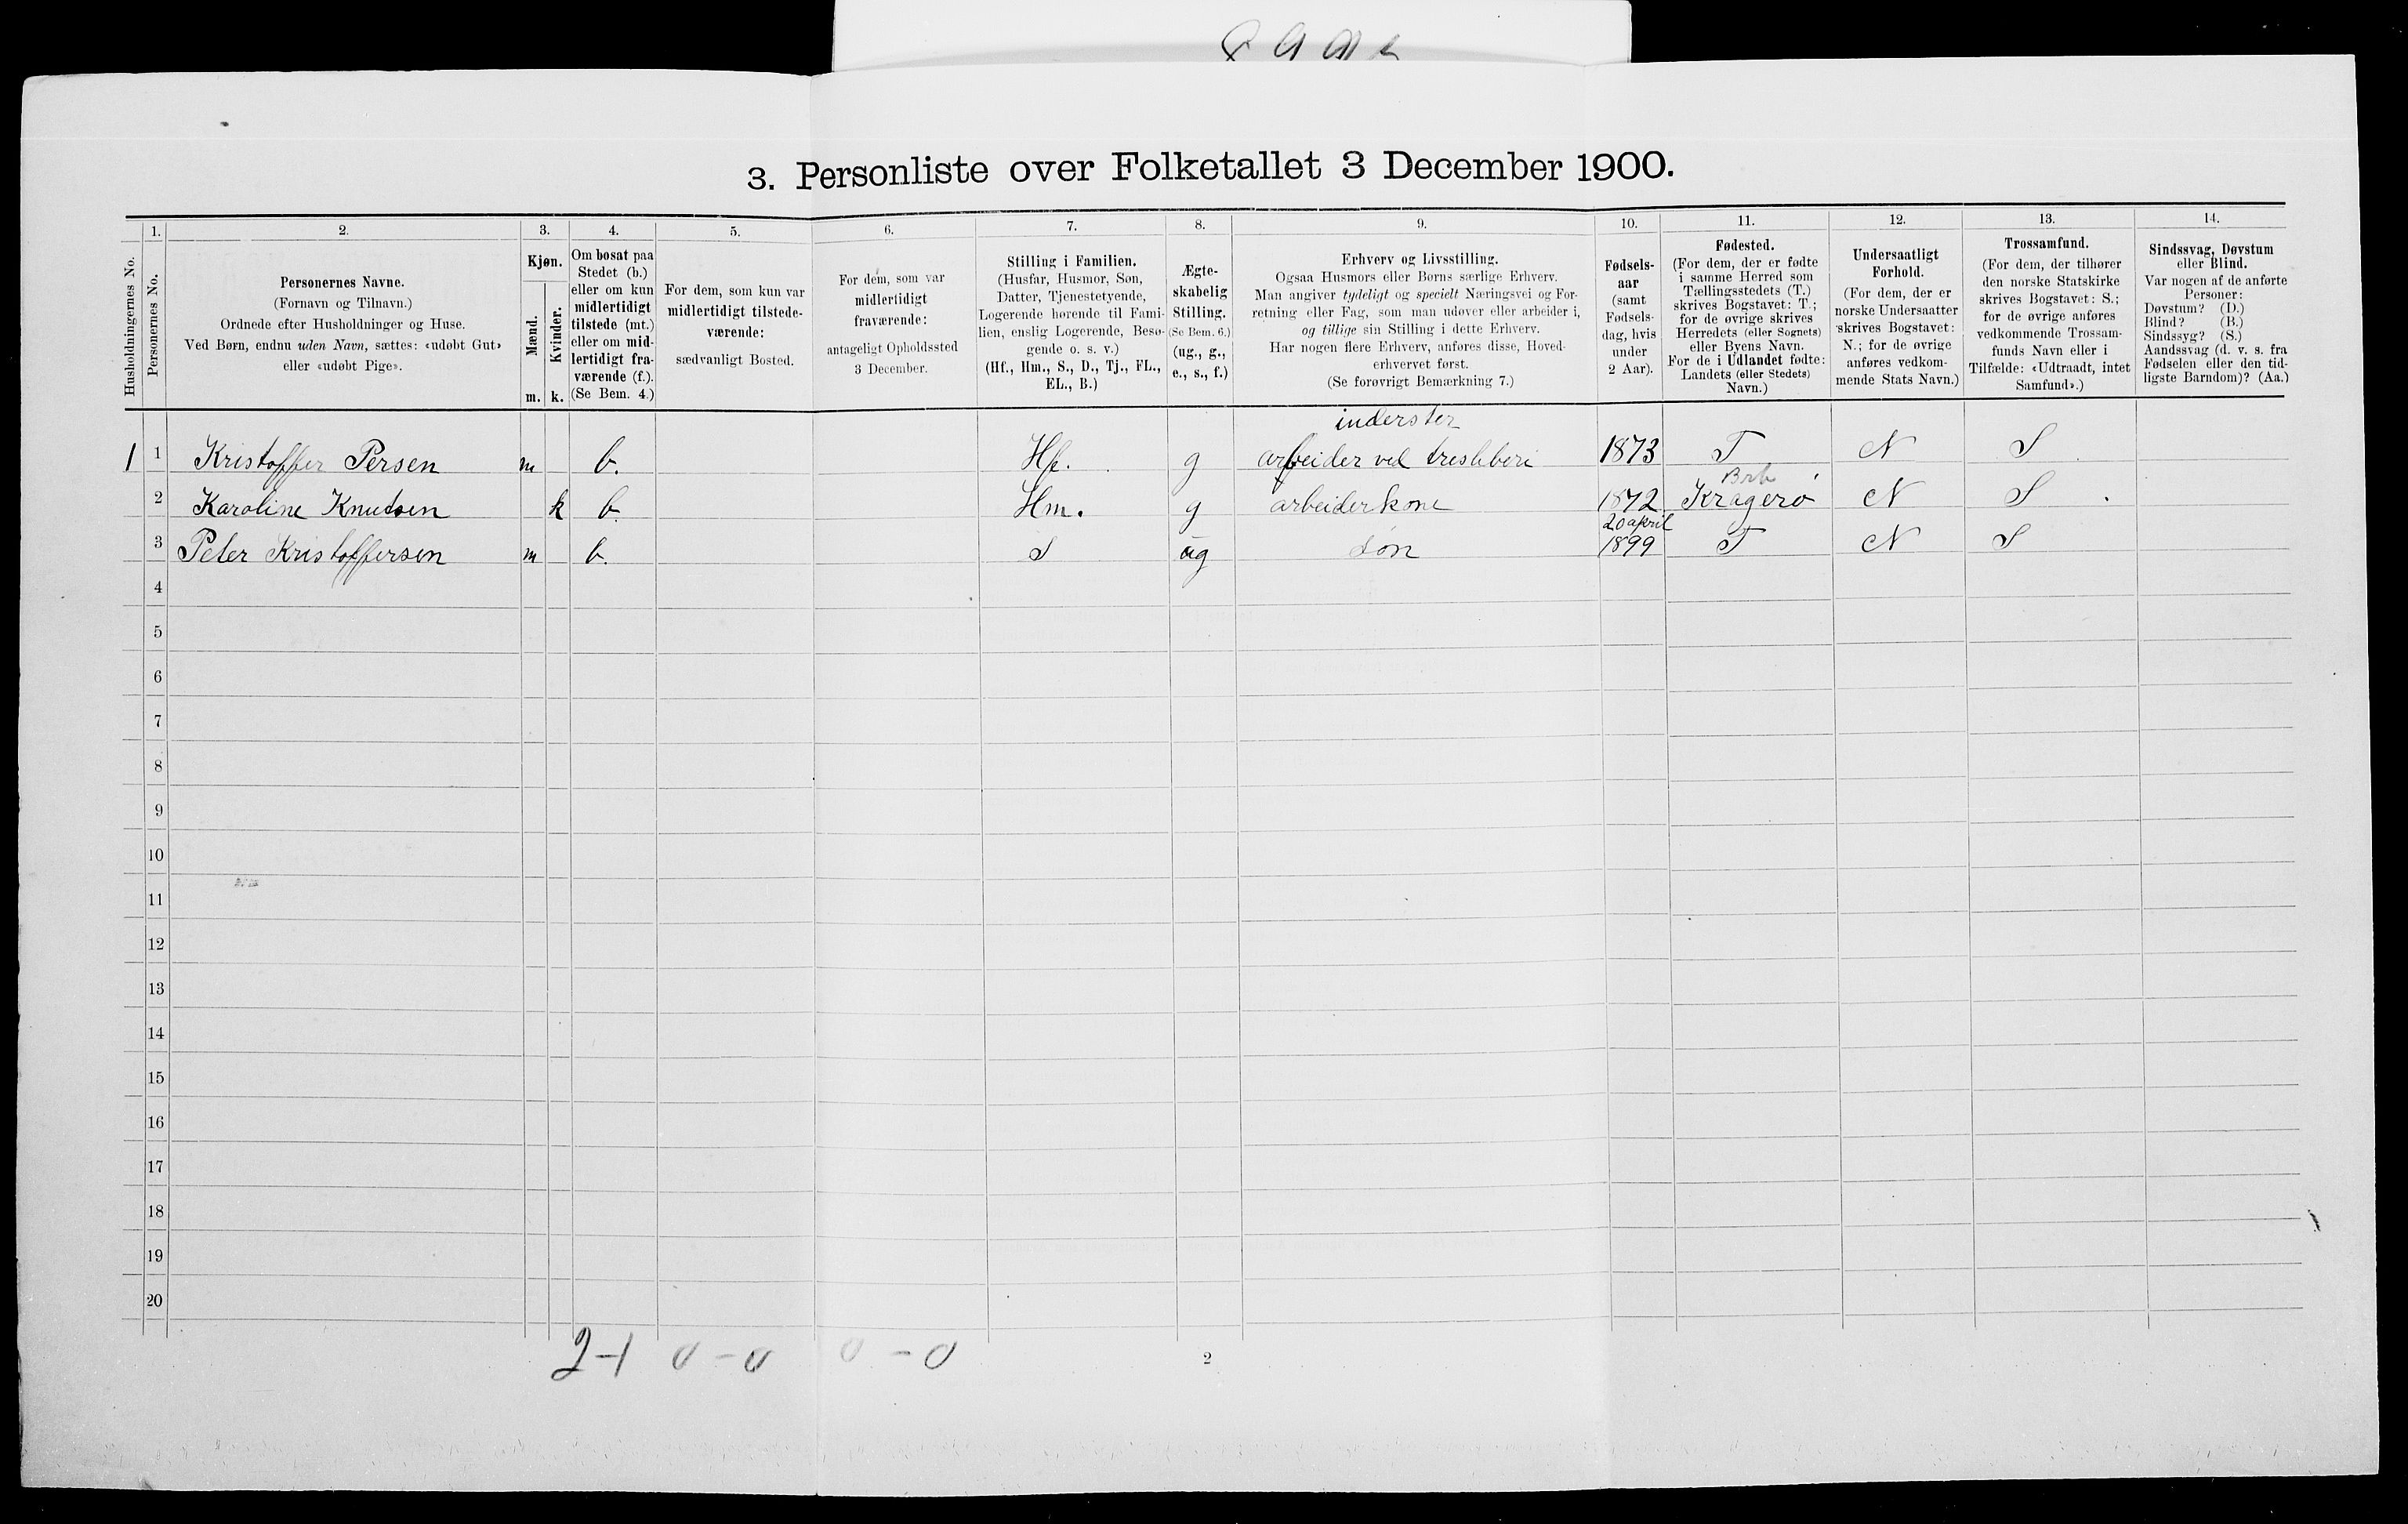 3. Personliste over Folketallet 3 December 1900.
1. 2. 3. 4. 5. 6. 7. 8. 9. 10. 11. 12. 13. 14.
Husholdningernes No.
Personernes No.
Personernes Navne.
(Fornavn og Tilnavn.)
Ordnede efter Husholdninger og Huse.
Ved Børn, endnu uden Navn, sættes: «udøbt Gut»
eller «udøbt Pige».
Kjøn.
Mænd.
Kvinder.
m. k.
Om bosat paa
Stedet (b.)
eller om kun
midlertidigt
tilstede (mt.)
eller om mid-
lertidigt fra-
værende (f.).
(Se Bem. 4.)
For dem, som kun var
midlertidigt tilstede-
værende:
sædvanligt Bosted.
For dem, som var
midlertidigt
fraværende:
antageligt Opholdssted
3 December.
Stilling i Familien.
(Husfar, Husmor, Søn,
Datter, Tjenestetyende,
Logerende hørende til Fami-
lien, enslig Logerende, Besø-
gende o. s. v.)
(Hf., Hm., S., D., Tj., FL.,
EL., B.)
Ægte-
skabelig
Stilling.
(Se Bem. 6.)
(ug., g.,
e., s., f.)
Erhverv og Livsstilling.
Ogsaa Husmors eller Børns særlige Erhverv.
Man angiver tydeligt og specielt Næringsvei og For-
retning eller Fag, som man udøver eller arbeider i,
og tillige sin Stilling i dette Erhverv.
Har nogen flere Erhverv, anføres disse, Hoved-
erhvervet først.
(Se forøvrigt Bemærkning 7.)
Fødsels-
aar
(samt
Fødsels-
dag, hvis
under
2 Aar).
Fødested.
(For dem, der er fødte
i samme Herred som
Tællingsstedets (T.)
skrives Bogstavet: T.;
for de øvrige skrives
Herredets (eller Sognets)
eller Byens Navn.
For de i Udlandet fødte:
Landets (eller Stedets)
Navn.)
Undersaatligt
Forhold.
(For dem, der er
norske Undersaatter
skrives Bogstavet:
N.; for de øvrige
anføres vedkom-
mende Stats Navn.)
Trossamfund.
(For dem, der tilhører
den norske Statskirke
skrives Bogstavet: S.;
for de øvrige anføres
vedkommende Trossam-
funds Navn eller i
Tilfælde: «Udtraadt, intet
Samfund».)
Sindssvag, Døvstum
eller Blind.
Var nogen af de anførte
Personer:
Døvstum? (D.)
Blind? (B.)
Sindssyg? (S.)
Aandssvag (d. v. s. fra
Fødselen eller den tid-
ligste Barndom)? (Aa.)
inderster
1 1 Kristoffer Persen m b. Hf. g arbeider ved tresliberi 1873 T N S
2 Karoline Knutsen k b. Hm. g arbeiderkone 1872 Kragerø N S
20 april
3 Peter Kristoffersen m b. S ug søn 1899 T N S
4
5
6
7
8
9
10
11
12
13
14
15
16
17
18
19
20
2-1 0-0 0-0
2